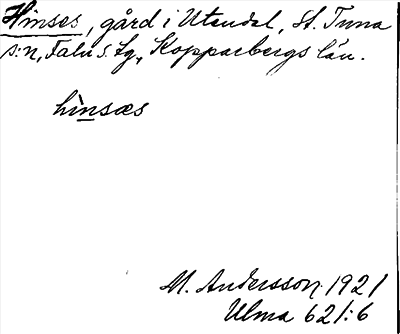 Hinses, gård i Utendal, St. Tuna
s:n, Falu s. lg., Kopparbergs län.
hìnsæs
M. Andersson 1921
Ulma 621:6